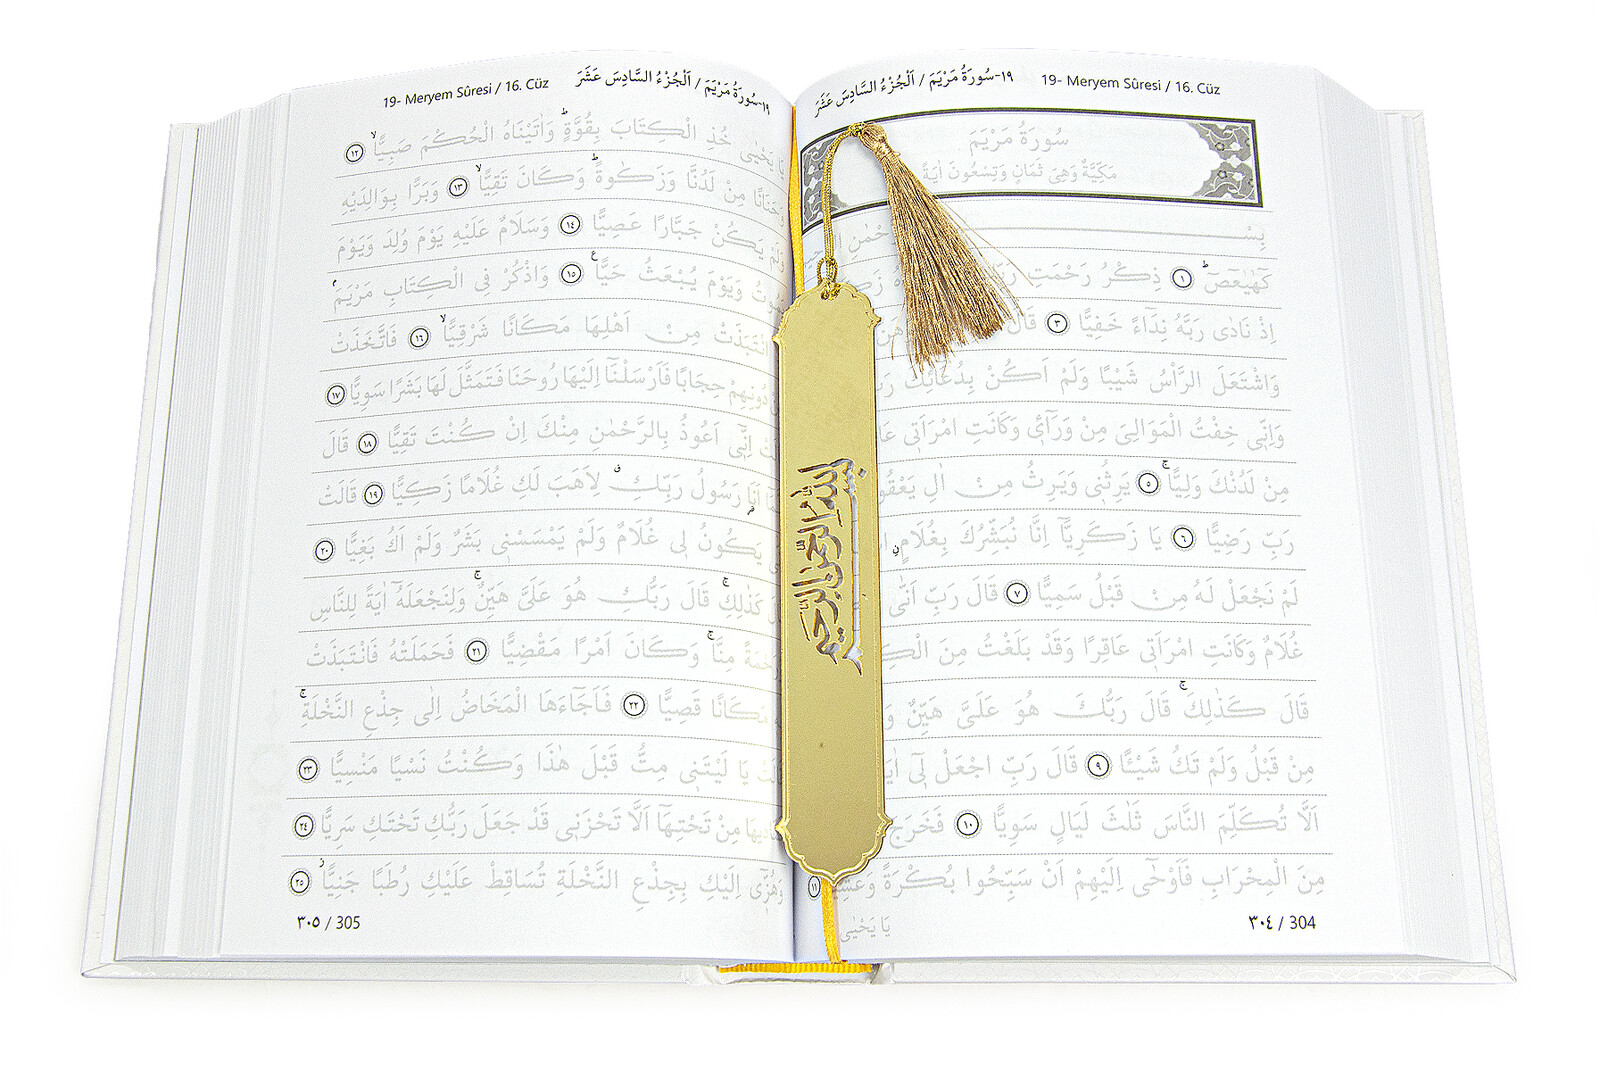 ١٩-سُورَةُ مَرْيَمَ / اَلْجُزْءُ السَّادِسَ عَشَرَ 19- Meryem Sûresi / 16. Cüz
سُورَةُ مَرْيَمَ
مَكِّيَّةٌ وَهِيَ ثَمَانٍ وَتِسْعُونَ اٰيَةً
بِسْـــــــــ
كٓهٰيٰعٓصٓ ۜ ١ ذِكْرُ رَحْمَتِ
اِذْ نَادٰى رَبَّهُ نِدَٓاءً خَفِيًّا ٣ قَالَ
وَاشْتَعَلَ الرَّأْسُ شَيْبًا وَلَمْ اَكُنْ بِدُعَٓائِكَ
وَاِنّ۪ي خِفْتُ الْمَوَالِيَ مِنْ وَرَٓاء۪ي وَكَانَتِ امْرَاَت۪ي
مِنْ لَدُنْكَ وَلِيًّا ۚ ٥ يَرِثُن۪ي وَيَرِثُ مِنْ اٰلِ يَعْقُو
رَبِّ رَضِيًّا ٦ يَا زَكَرِيَّٓا اِنَّا نُبَشِّرُكَ بِغُلَامٍ
لَمْ نَجْعَلْ لَهُ مِنْ قَبْلُ سَمِيًّا ٧ قَالَ رَبِّ اَنّٰى
غُلَامٌ وَكَانَتِ امْرَاَت۪ي عَاقِرًا وَقَدْ بَلَغْتُ مِنَ
قَالَ كَذٰلِكَ ۚ قَالَ رَبُّكَ هُوَ عَلَيَّ هَيِّنٌ
مِنْ قَبْلُ وَلَمْ تَكُ شَيْـًٔا ٩ قَالَ رَبِّ اجْعَلْ ل۪ٓي
اَلَّا تُكَلِّمَ النَّاسَ ثَلٰثَ لَيَالٍ سَوِيًّا ١٠ فَخَرَجَ
مِنَ الْمِحْرَابِ فَاَوْحٰٓى اِلَيْهِمْ اَنْ سَبِّحُوا بُكْرَةً وَعَشِيًّا ١١
يَا يَحْيٰى
٣٠٤ / 304
بسم الله الرحمن الرحيم
19- Meryem Sûresi / 16. Cüz ١٩-سُورَةُ مَرْيَمَ / اَلْجُزْءُ السَّادِسَ عَشَرَ
يَا يَحْيٰى خُذِ الْكِتَابَ بِقُوَّةٍ ۜ وَاٰتَيْنَاهُ الْحُكْمَ صَبِيًّا ۙ ١٢
وَحَنَانًا مِنْ لَدُنَّا وَزَكٰوةً ۜ وَكَانَ تَقِيًّا ۙ ١٣ وَبَرًّا بِوَالِدَيْهِ
وَلَمْ يَكُنْ جَبَّارًا عَصِيًّا ١٤ وَسَلَامٌ عَلَيْهِ يَوْمَ وُلِدَ وَيَوْمَ
يَمُوتُ وَيَوْمَ يُبْعَثُ حَيًّا ١٥ وَاذْكُرْ فِي الْكِتَابِ مَرْيَمَ
انْتَبَذَتْ مِنْ اَهْلِهَا مَكَانًا شَرْقِيًّا ۙ ١٦ فَاتَّخَذَتْ
دُونِهِمْ حِجَابًا فَاَرْسَلْنَٓا اِلَيْهَا رُوحَنَا فَتَمَثَّلَ لَهَا بَشَرًا سَوِيًّا ١٧
اِنّ۪ٓي اَعُوذُ بِالرَّحْمٰنِ مِنْكَ اِنْ كُنْتَ تَقِيًّا ١٨ قَالَ
اَنَا رَسُولُ رَبِّكِ ۗ لِاَهَبَ لَكِ غُلَامًا زَكِيًّا ١٩ قَالَتْ
يَكُونُ ل۪ي غُلَامٌ وَلَمْ يَمْسَسْن۪ي بَشَرٌ وَلَمْ اَكُ بَغِيًّا ٢٠
كَذٰلِكِ ۚ قَالَ رَبُّكِ هُوَ عَلَيَّ هَيِّنٌ ۚ وَلِنَجْعَلَهُٓ اٰيَةً لِلنَّاسِ
وَرَحْمَةً مِنَّا ۚ وَكَانَ اَمْرًا مَقْضِيًّا ٢١ فَحَمَلَتْهُ فَانْتَبَذَتْ
مَكَانًا قَصِيًّا ٢٢ فَاَجَٓاءَهَا الْمَخَاضُ اِلٰى جِذْعِ النَّخْلَةِ ۚ
يَا لَيْتَن۪ي مِتُّ قَبْلَ هٰذَا وَكُنْتُ نَسْيًا مَنْسِيًّا ٢٣
مِنْ تَحْتِهَٓا اَلَّا تَحْزَن۪ي قَدْ جَعَلَ رَبُّكِ تَحْتَكِ سَرِيًّا ٢٤
وَهُزّ۪ٓي اِلَيْكِ بِجِذْعِ النَّخْلَةِ تُسَاقِطْ عَلَيْكِ رُطَبًا جَنِيًّا ٢٥
٣٠٥ / 305